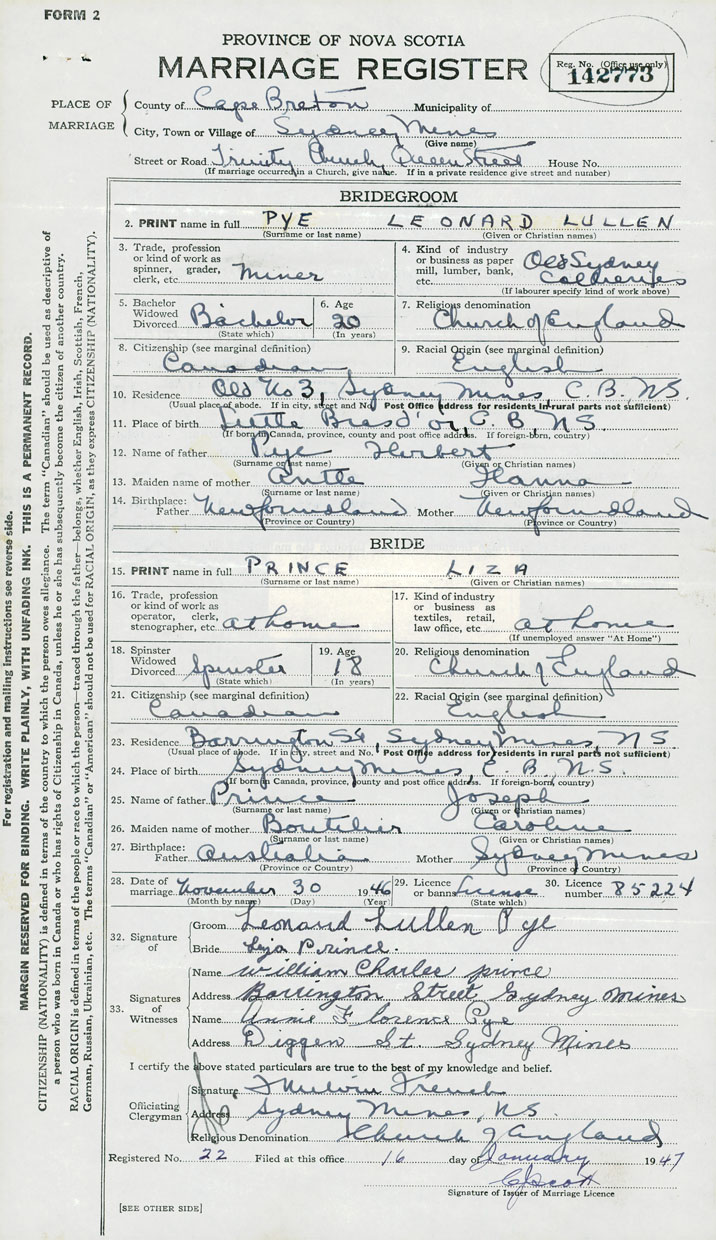 FORM 2
PROVINCE OF NOVA SCOTIA
MARRIAGE REGISTER
Reg. No. (Office use only)
142773
PLACE OF MARRIAGE
County of Cape Breton Municipality of
City, Town or Village of Sydney Mines
(Give name)
Street or Road Trinity Church Queen Street House No.
(If marriage occurred in a Church, give name. If in a private residence give street and number)
BRIDEGROOM
2. PRINT name in full PYE LEONARD LULLEN
(Surname or last name) (Given or Christian names)
3. Trade, profession or kind of work as spinner, grader, clerk, etc. Miner
4. Kind of industry or business as paper mill, lumber, bank, etc. Old Sydney Collieries
(If labourer specify kind of work above)
5. Bachelor Widowed Divorced Bachelor
(State which)
6. Age 20
(In years)
7. Religious denomination Church of England
8. Citizenship (see marginal definition) Canadian
9. Racial Origin (see marginal definition) English
10. Residence Old No 3, Sydney Mines, C.B. N.S.
(Usual place of abode. If in city, street and No. Post Office address for residents in rural parts not sufficient)
11. Place of birth Little Bras d'or, C.B., N.S.
(If born in Canada, province, county and post office address. If foreign-born, country)
12. Name of father Pye Herbert
(Surname or last name) (Given or Christian names)
13. Maiden name of mother Antle Hanna
(Surname or last name) (Given or Christian names)
14. Birthplace: Father Newfoundland Mother Newfoundland
(Province or Country) (Province or Country)
BRIDE
15. PRINT name in full PRINCE LIZA
(Surname or last name) (Given or Christian names)
16. Trade, profession or kind of work as operator, clerk, stenographer, etc. at home
17. Kind of industry or business as textiles, retail, law office, etc. at home
(If unemployed answer "At Home")
18. Spinster Widowed Divorced Spinster
(State which)
19. Age 18
(In years)
20. Religious denomination Church of England
21. Citizenship (see marginal definition) Canadian
22. Racial Origin (see marginal definition) English
23. Residence Barrington St, Sydney Mines, N.S.
(Usual place of abode. If in city, street and No. Post Office address for residents in rural parts not sufficient)
24. Place of birth Sydney Mines, C.B. N.S.
(If born in Canada, province, county and post office address. If foreign-born, country)
25. Name of father Prince Joseph
(Surname or last name) (Given or Christian names)
26. Maiden name of mother Boutilier Caroline
(Surname or last name) (Given or Christian names)
27. Birthplace: Father Australia Mother Sydney Mines
(Province or Country) (Province or Country)
28. Date of marriage November 30 1946
(Month by name) (Day) (Year)
29. Licence or banns License
(State which)
30. Licence number 85224
32. Signature of
Groom Leonard Lullen Pye
Bride Liza Prince.
33. Signatures of Witnesses
Name William Charles prince
Address Barrington Street Sydney Mines
Name Annie Florence Pye
Address Diggen St. Sydney Mines
I certify the above stated particulars are true to the best of my knowledge and belief.
Officiating Clergyman
Signature Melvin French
Address Sydney Mines, N.S.
Religious Denomination Church of England
Registered No. 22 Filed at this office 16 day of January 1947
Scott
Signature of Issuer of Marriage Licence
[SEE OTHER SIDE]
For registration and mailing instructions see reverse side.
MARGIN RESERVED FOR BINDING. WRITE PLAINLY, WITH UNFADING INK. THIS IS A PERMANENT RECORD.
CITIZENSHIP (NATIONALITY) is defined in terms of the country to which the person owes allegiance. The term "Canadian" should be used as descriptive of
a person who was born in Canada or who has rights of Citizenship in Canada, unless he or she has subsequently become the citizen of another country.
RACIAL ORIGIN is defined in terms of the people or race to which the person—traced through the father—belongs, whether English, Irish, Scottish, French,
German, Russian, Ukrainian, etc. The terms "Canadian" or "American" should not be used for RACIAL ORIGIN, as they express CITIZENSHIP (NATIONALITY).